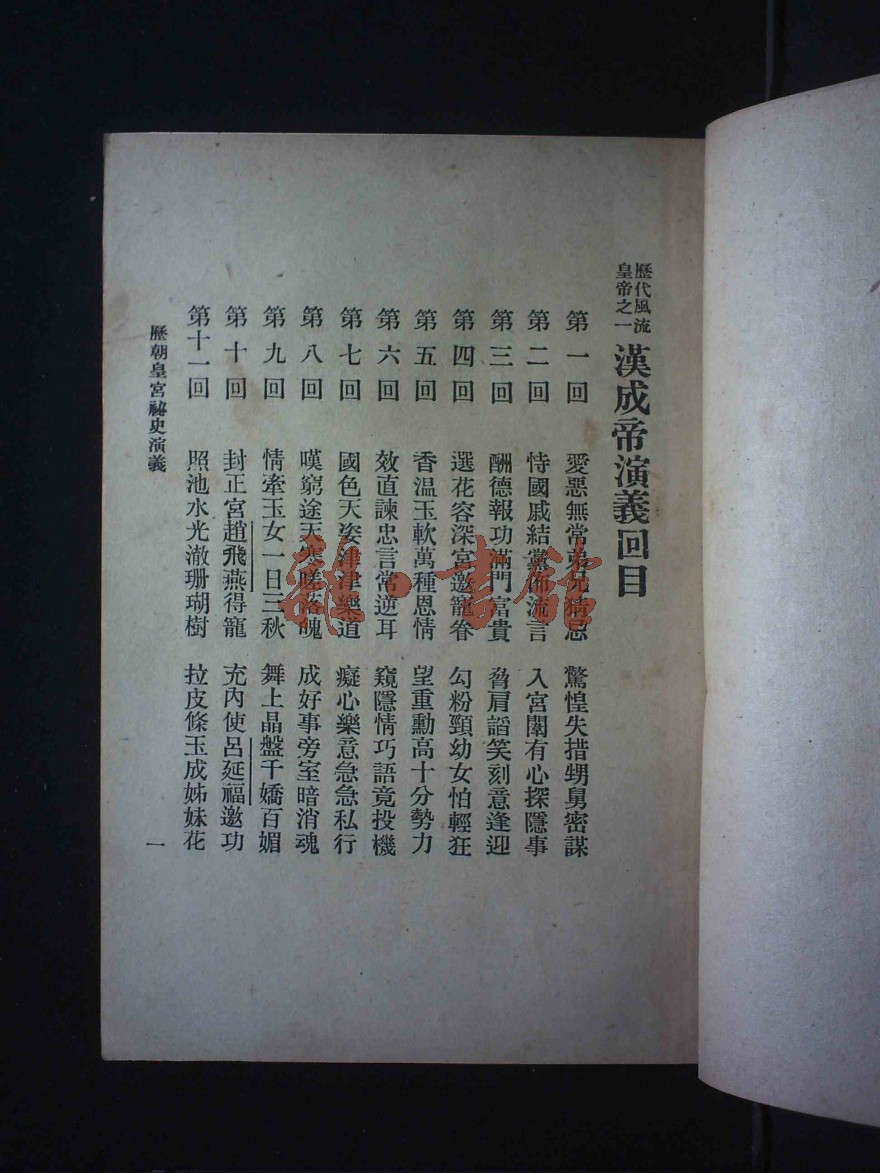 歷代風流
皇帝之一
漢成帝演義回目
第一回 愛惡無常弟兄猜忌 驚惶失措甥舅密謀
第二回 恃國戚結黨佈流言 入宮闈有心探隱事
第三回 酬德報功滿門富貴 脅肩諂笑刻意逢迎
第四回 選花容深宮邀寵眷 勾粉頸幼女怕輕狂
第五回 香温玉軟萬種恩情 望重勳高十分勢力
第六回 效直諫忠言常逆耳 窺隱情巧語竟投機
第七回 國色天姿津津樂道 癡心樂意急急私行
第八回 嘆窮途天寒嗟落魄 成好事旁室暗消魂
第九回 情牽玉女一日三秋 舞上晶盤千嬌百媚
第十回 封正宮趙飛燕得寵 充內使呂延福邀功
第十一回 照池水光澈珊瑚樹 拉皮條玉成姊妹花
歷朝皇宮祕史演義
一